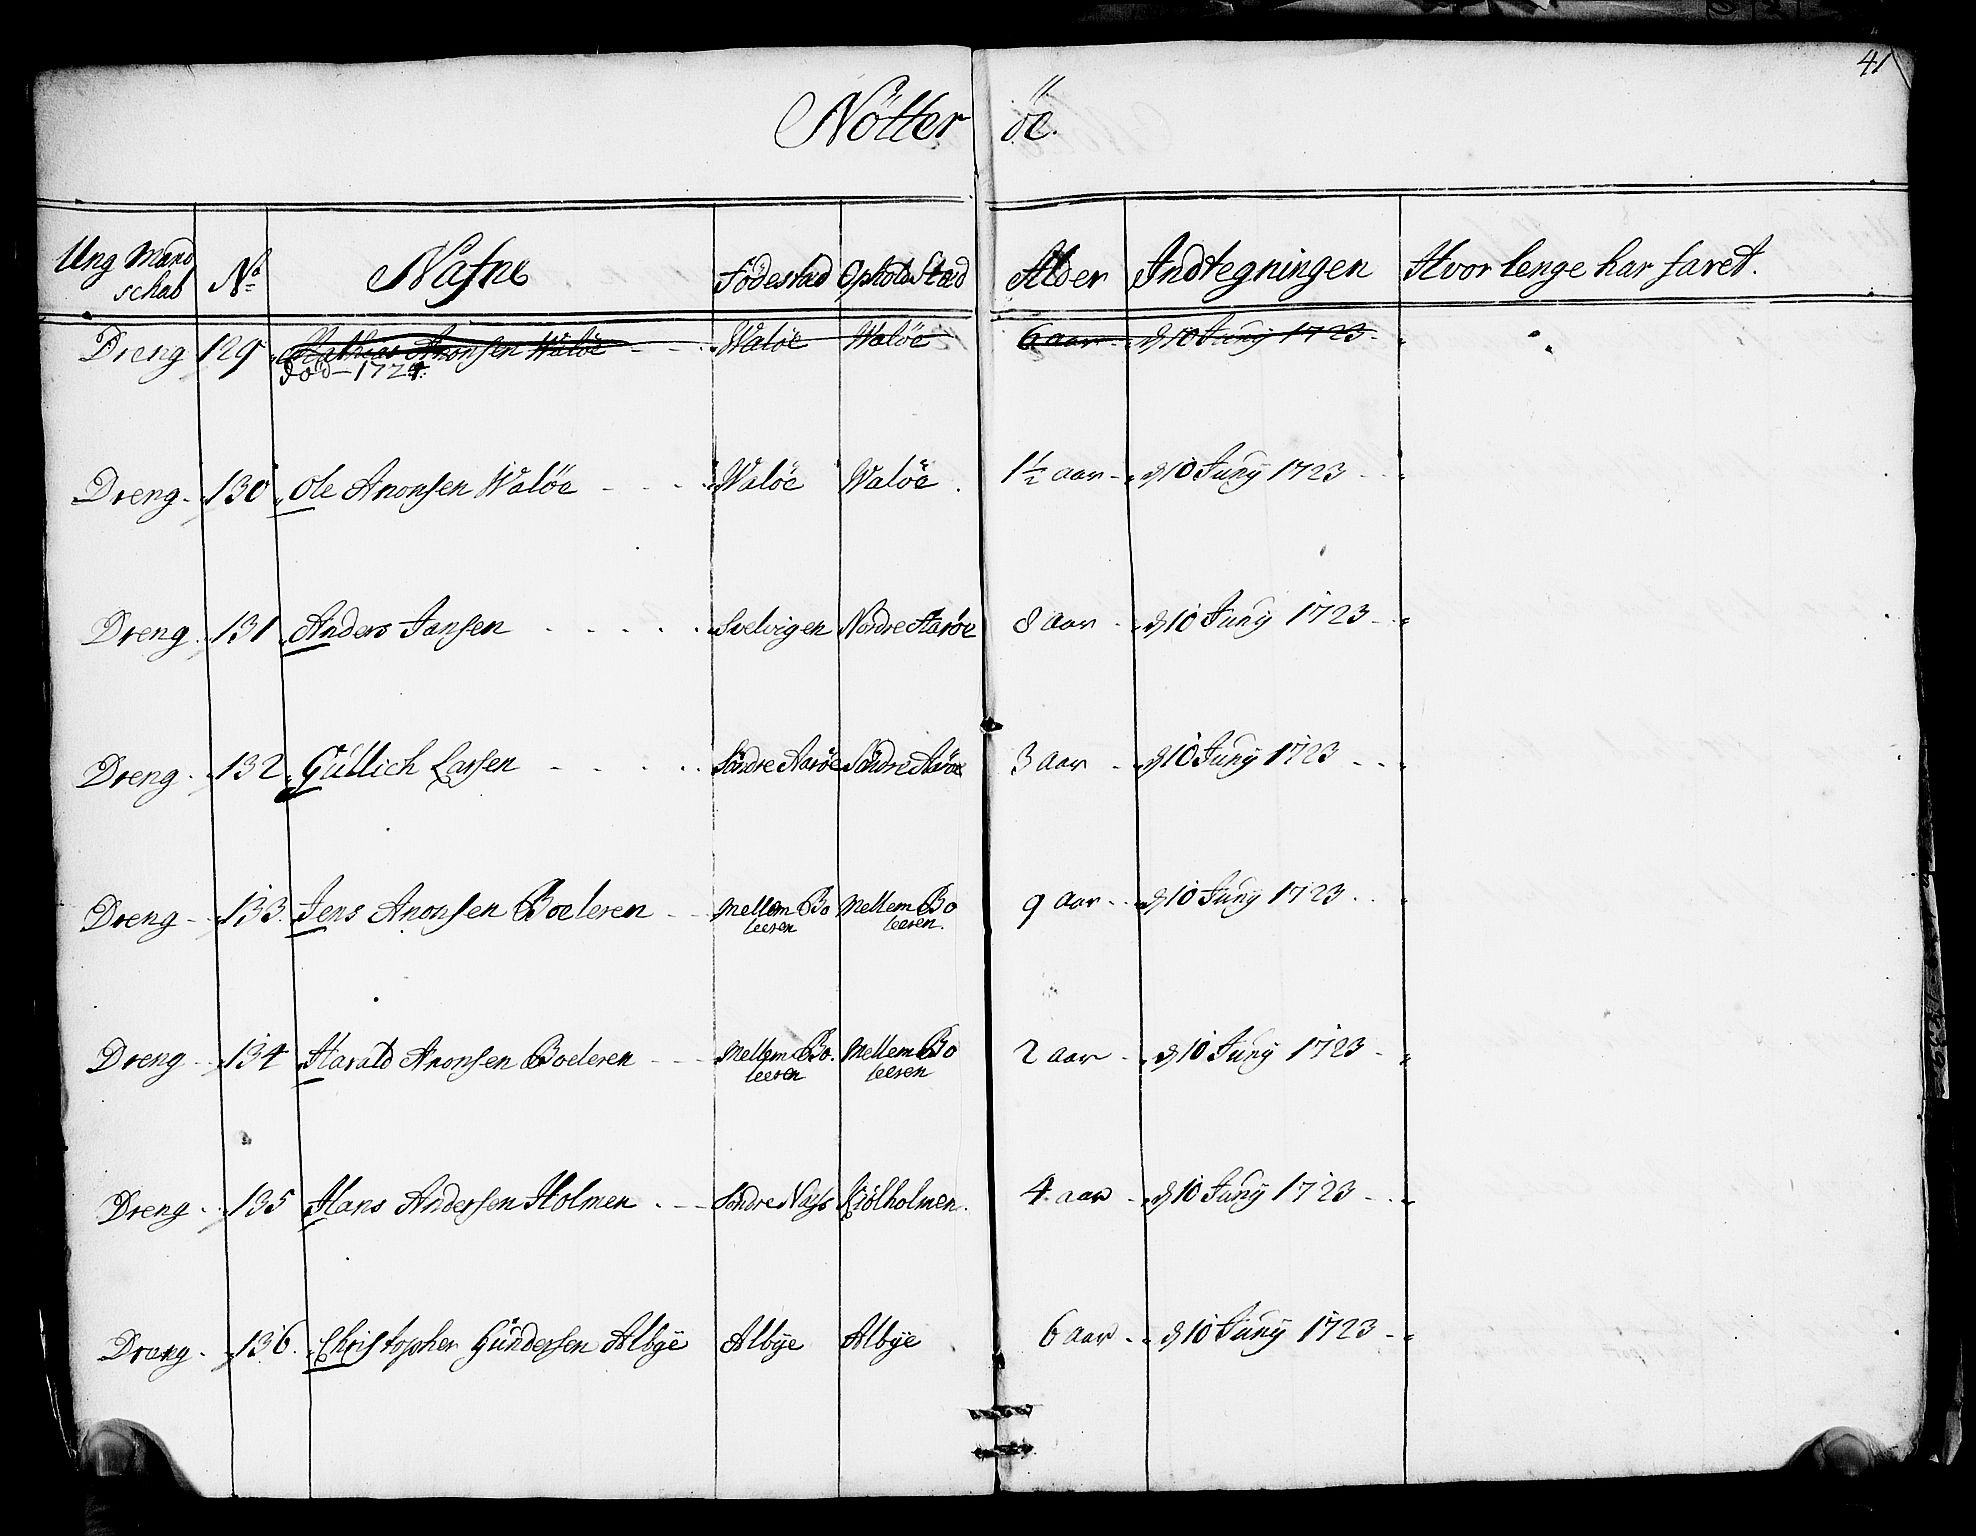 41
Nötter öe.
Ung Mand schab No Nafne Födestad Opholds Stæd Alder Indtegningen Hvor lenge har faret.
Dreng 129 Mathias Anonsen Waløe Waløe Waløe 6 aar d 10 Juny 1723
død 1724
Dreng 130 Ole Anonsen Waløe Waløe Waløe 1½ aar d 10 Juny 1723
Dreng 131 Anders Jansen Svelvigen Nordre Aarøe 8 aar d 10 Juny 1723
Dreng 132 Gullich Larsen Söndre Aarøe Söndre Aarøe 3 aar d 10 Juny 1723
Dreng 133 Jens Anonsen Boeleren Mellem Bo Mellem Bo 9 aar d 10 Juny 1723
leeren leeren.
Dreng 134 Harald Anonsen Boeleren Mellem Bo. Mellem Bo 2 aar d 10 Juny 1723
leeren leeren
Dreng 135 Hans Andersen Holmen Söndre Næss Kiölholmen. 4 aar d 10 Juny 1723
Dreng 136 Christopher Gundersen Albye Albye Albye 6 aar d 10 Juny 1723